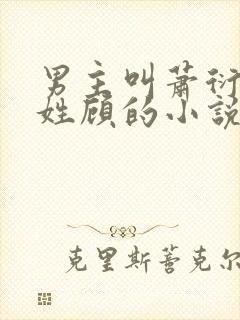 男主叫萧衍
姓顾的小説
克里斯蒂克尔